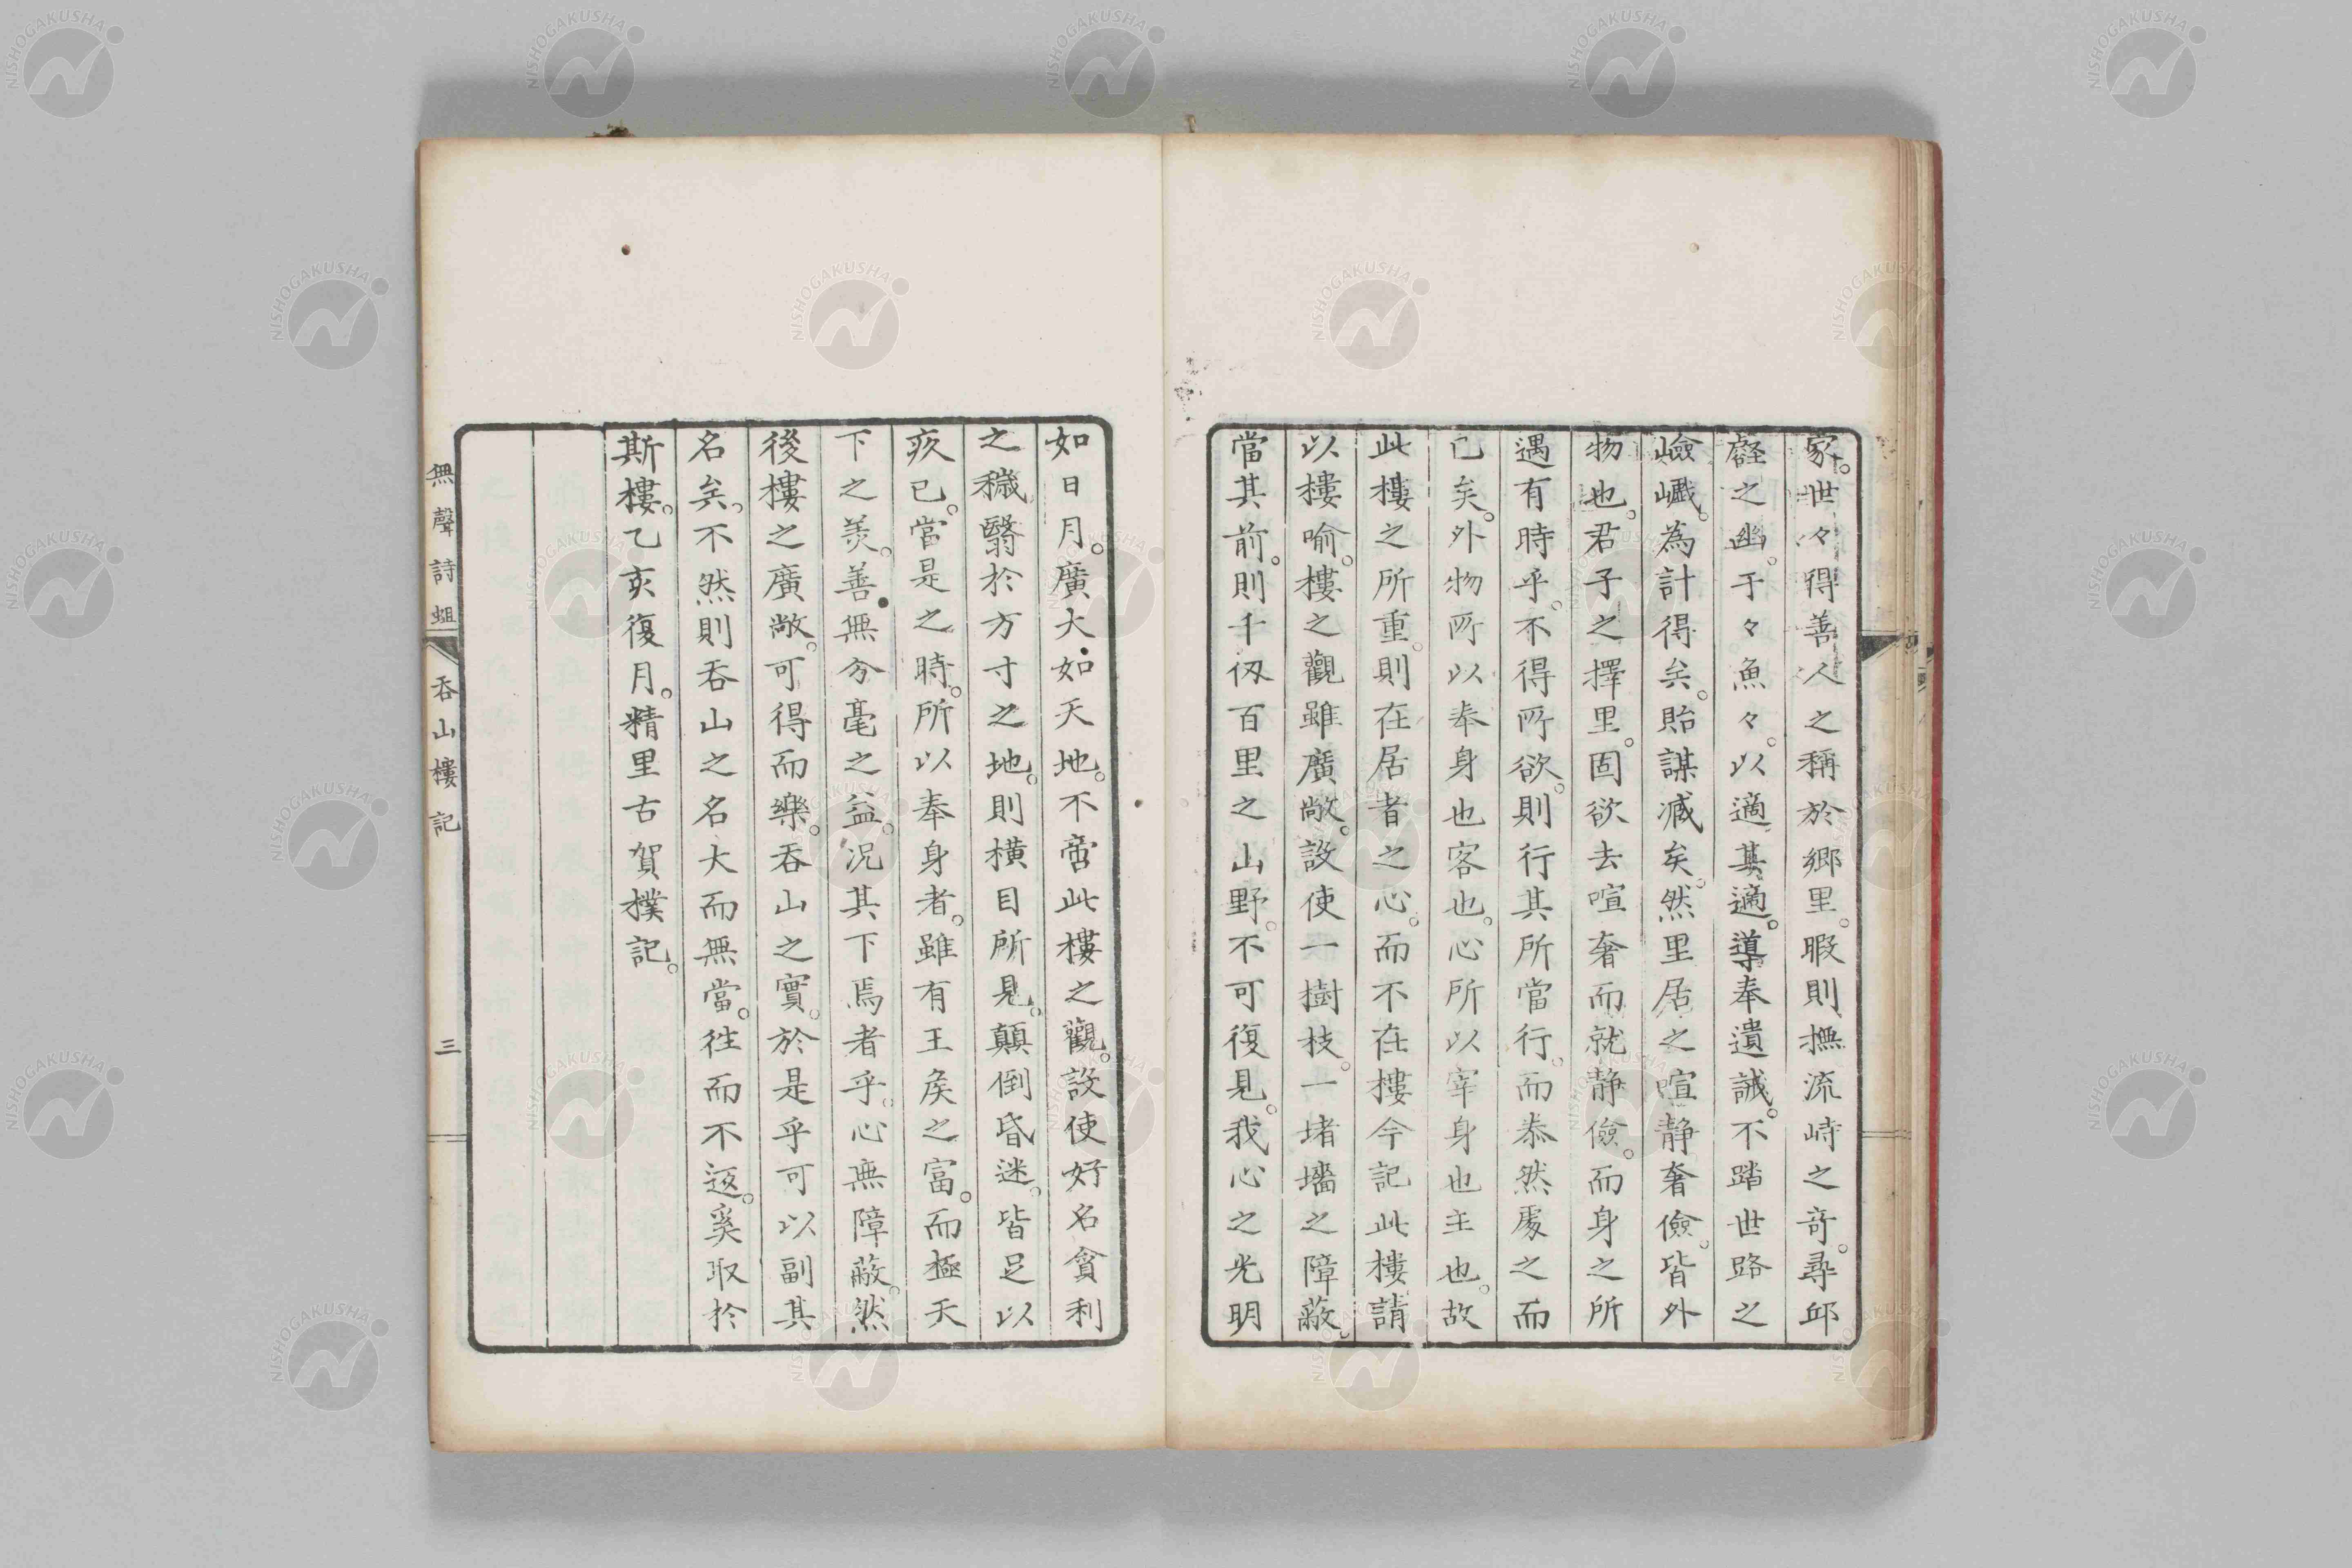 家。世々得善人之稱於鄉里。暇則撫流峙之奇。尋邱
壑之幽。于々魚々。以適其適。導奉遺誡。不踏世路之
嶮巇。為計得矣。貽謀減矣。然里居之喧静奢儉。皆外
物也。君子之擇里。固欲去喧奢而就静儉。而身之所
遇有時乎。不得所欲。則行其所當行。而泰然處之而
已矣。外物所以奉身也客也。心所以宰身也主也。故
此樓之所重。則在居者之心。而不在樓今記此樓請
以樓喻。樓之觀雖廣敞。設使一樹枝。一堵墻之障蔽。
當其前。則千仭百里之山野。不可復見。我心之光明
如日月。廣大如天地。不啻此樓之觀。設使好名貪利
之穢翳於方寸之地。則橫目所見。顛倒昏迷。皆足以
疚已。當是之時。所以奉身者。雖有王侯之富。而極天
下之羨。善無分毫之益。况其下焉者乎。心無障蔽。然
後樓之廣敞。可得而樂。吞山之實。於是乎可以副其
名矣。不然則吞山之名大而無當。往而不返。奚取於
斯樓。乙亥復月。精里古賀樸記。
無聲詩蛆 吞山樓記 三
NISHOGAKUSHA